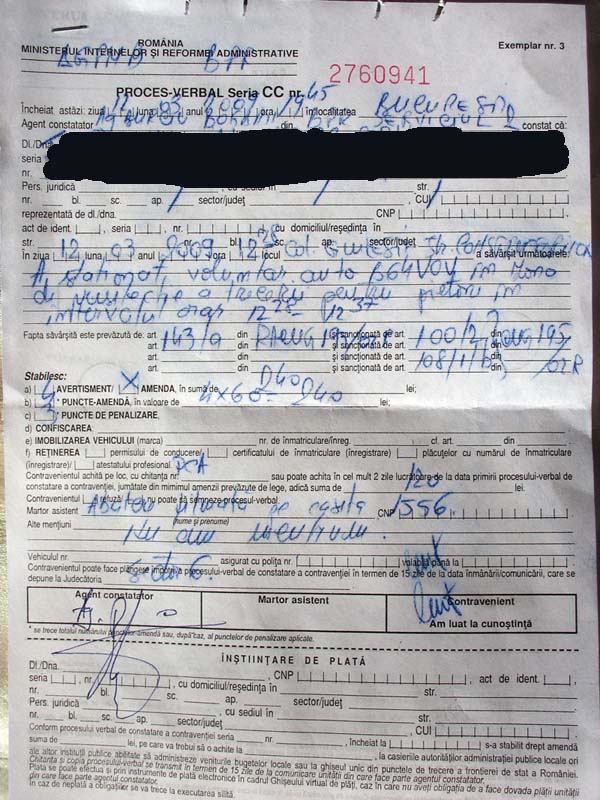 ROMÂNIA
MINISTERUL INTERNELOR ȘI REFORMEI ADMINISTRATIVE
Exemplar nr. 3
2760941
PROCES-VERBAL Seria CC nr.
Încheiat astăzi: ziua luna 03 anul ora în localitatea BUCUREȘTI
Agent constatator din constat că:
Dl./Dna
seria
nr.
Pers. juridică cu sediul în str.
nr. bl. sc. ap. sector/județ CUI
reprezentată de dl./dna. CNP
act de ident. seria nr. cu domiciliu/reședința în
str. nr. bl. sc. ap. sector/județ a săvârșit următoarele:
În ziua 12 luna 03 anul 2009 ora 12 locul
A staționat voluntar auto B64VOV în zona
de a trecerii pentru pietoni în
intervalul orar 12 25 - 12 37
Fapta săvârșită este prevăzută de: art 143/a din și sancționată de art. 100/2 din OUG 195/
art din și sancționată de art. 108/1/b din 02R
art din și sancționată de art. din
Stabilesc:
a) AVERTISMENT/ X AMENDA, în sumă de 240 lei;
b) 4 * PUNCTE-AMENDĂ, în valoare de 4x60= 240 lei;
c) * PUNCTE DE PENALIZARE,
d) CONFISCAREA
e) IMOBILIZAREA VEHICULUI (marca) nr. de înmatriculare/înreg. cf. art. din
f) REȚINEREA permisului de conducere/ certificatului de înmatriculare (înregistrare)/ plăcuțelor cu numărul de înmatriculare
(înregistrare)/ atestatului profesional
Contravenientul achită pe loc, cu chitanța nr. sau poate achita în cel mult 2 zile lucrătoare de la data primirii procesului-verbal de
constatare a contravenției, jumătate din minimul amenzii prevăzute de lege, adică suma de 120 lei.
Contravenientul refuză/ nu poate să semneze procesul-verbal.
Martor asistent CNP
(nume și prenume)
Alte mențiuni Nu am mențiuni.
Vehiculul nr. asigurat cu polița nr. valabilă până la
Contravenientul poate face plângere împotriva procesului-verbal de constatare a contravenției în termen de 15 zile de la data înmânării/comunicării, care se
depune la Judecătoria
Agent constatator Martor asistent Contravenient
Am luat la cunoștință
* se trece totalul numărului punctelor-amendă sau, după caz, al punctelor de penalizare aplicate.
ÎNȘTIINȚARE DE PLATĂ
Dl./Dna. , CNP act de ident.
seria , nr. , cu domiciliu/reședința în str.
nr. bl. sc. ap. sector/județ
Pers. juridică , cu sediul în str.
nr. bl. sc. ap. sector/județ
Conform procesului verbal de constatare a contravenției seria nr. , încheiat la s-a stabilit drept amendă
suma de lei, pe care va trebui să o achite la , la casieriile autorităților administrației publice locale ori
ale altor instituții publice abilitate să administreze veniturile bugetelor locale sau la ghișeul unic din punctele de trecere a frontierei de stat a României.
Chitanța și copia procesului-verbal se transmit în termen de 15 zile de la comunicare unității din care face parte agentul constatator.
Plata se poate efectua și prin instrumente de plată electronice în cadrul Ghișeului virtual de plăți, caz în care nu aveți obligația de a face dovada plății unității
din care face parte agentul constatator.
În caz de neplată a obligațiilor se va trece la executarea silită.